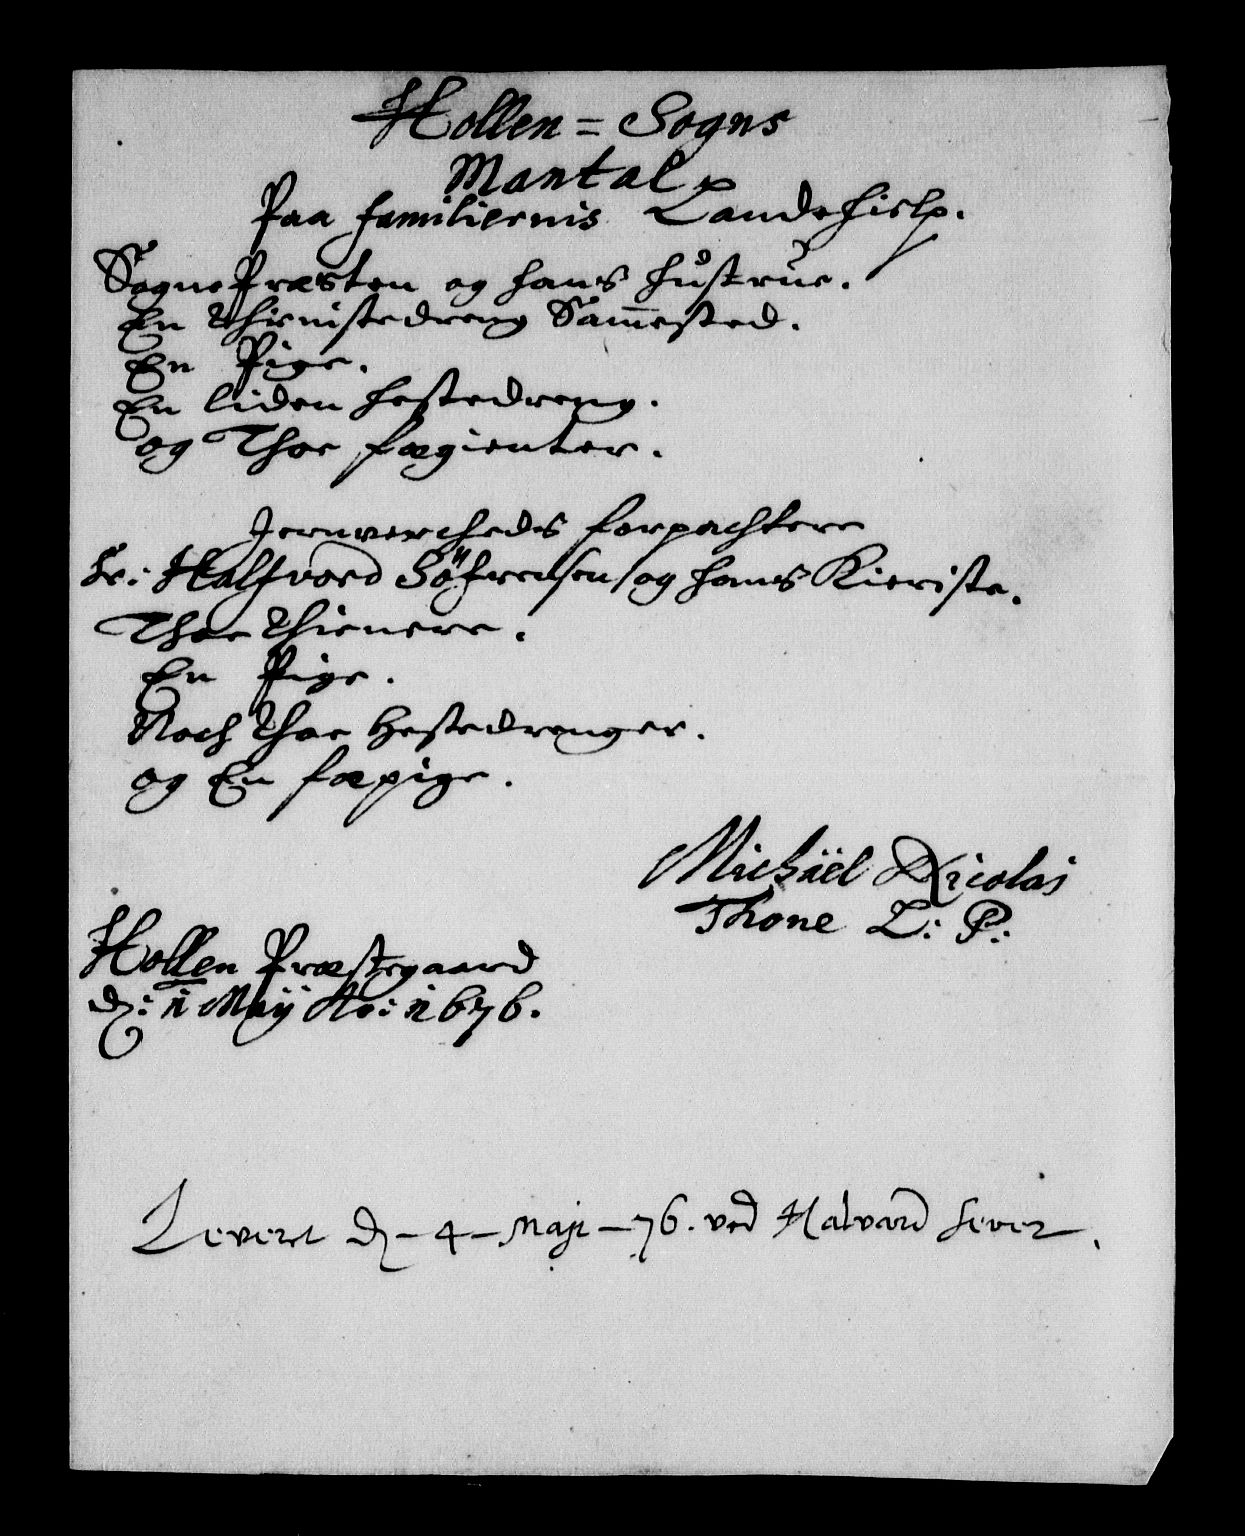 Hollen = Sogns
Mantal
Paa familiernis Landehielp.
SognePræsten og hans hustrue.
En thienistedreng Sam̅ested.
En Pige.
En liden hestedreng.
og Thoe fægienter.
Jernvercheds forpachtere
Sr: Halfvord Söfrensen og hans Kieriste.
Thoe thienere.
En Pige.
Noch thoe hestedrenger.
og En fæpige.
Michäel Nicolai
Thone L: P:
Hollen Præstegaard
d: 1 Maÿ Ao: 1676.
Levert d - 4 - Maji - 76. ved Halvard